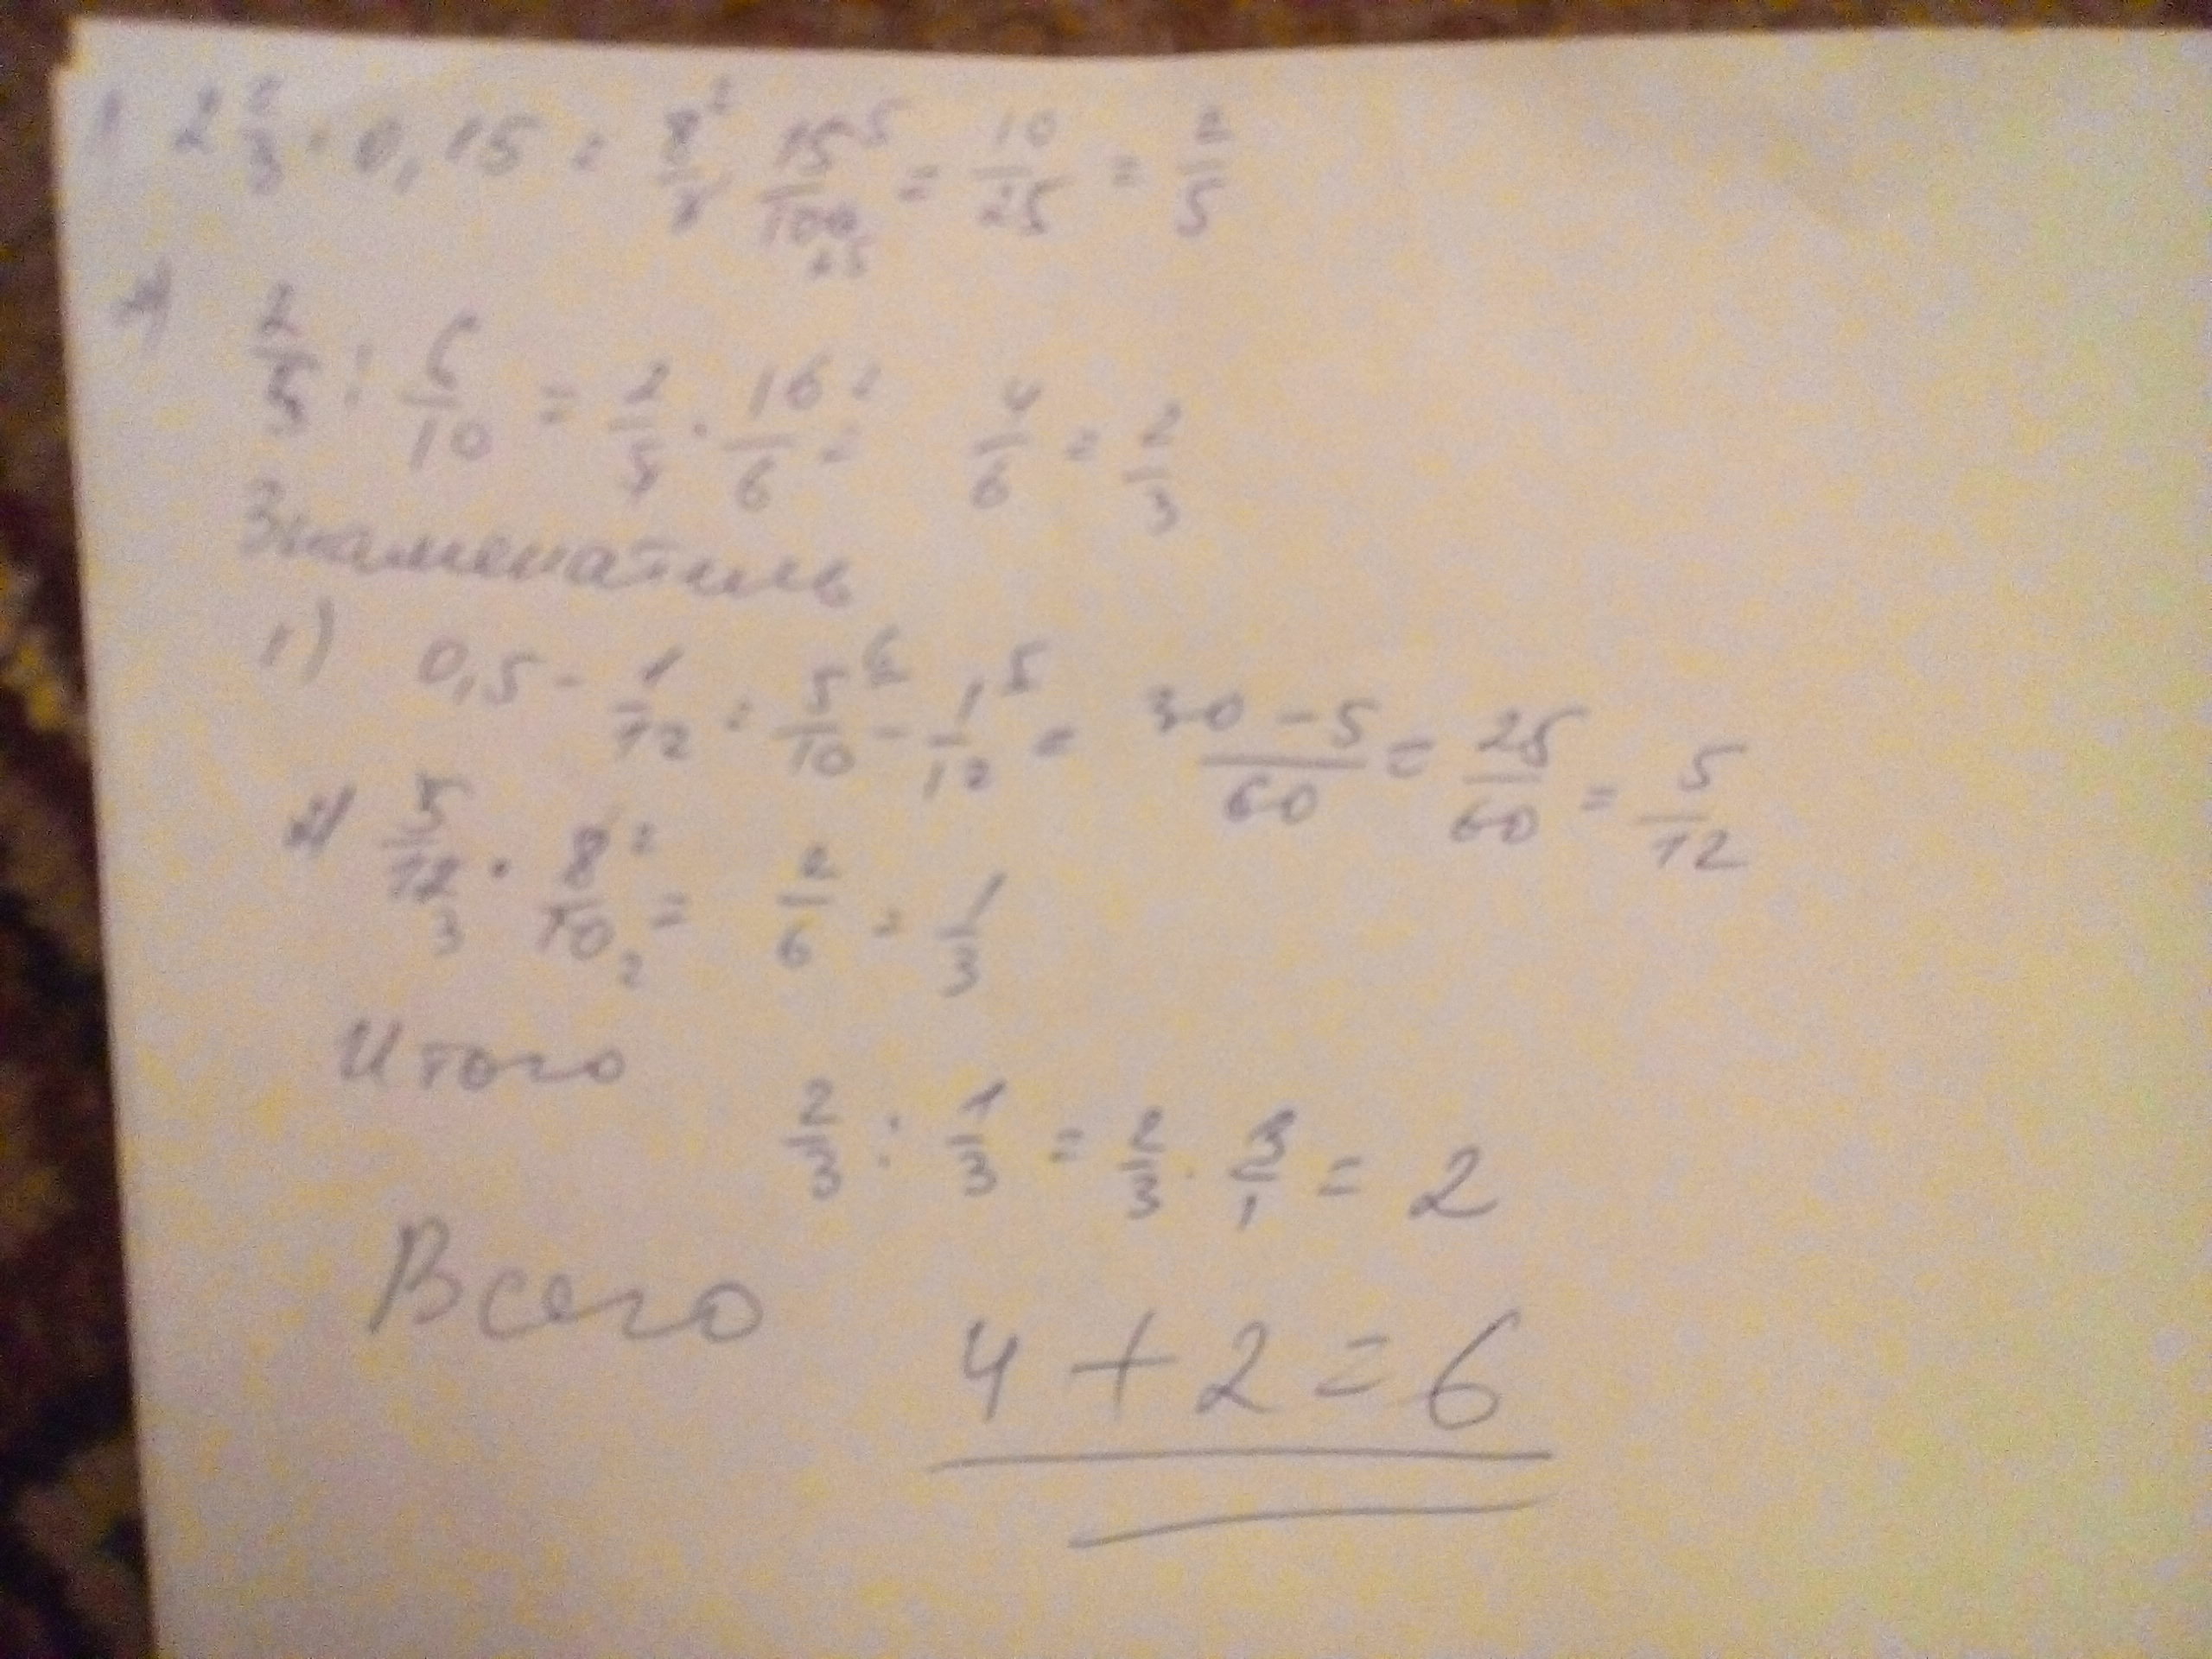 1 2 2/3 · 0,15 = 8²/3 15⁵/100₂₅ = 10/25 = 2/5
2) 2/5 : 6/10 = 2/5 · 10²/6 = 4/6 = 2/3
Знаменатель
1) 0,5 - 1/12 = 5⁶/10 - 1⁵/12 = 30-5/60 = 25/60 = 5/12
2) 5/12₃ · 8²/10₂ = 2/6 = 1/3
Итого
2/3 : 1/3 = 2/3 · 3/1 = 2
Всего
4 + 2 = 6